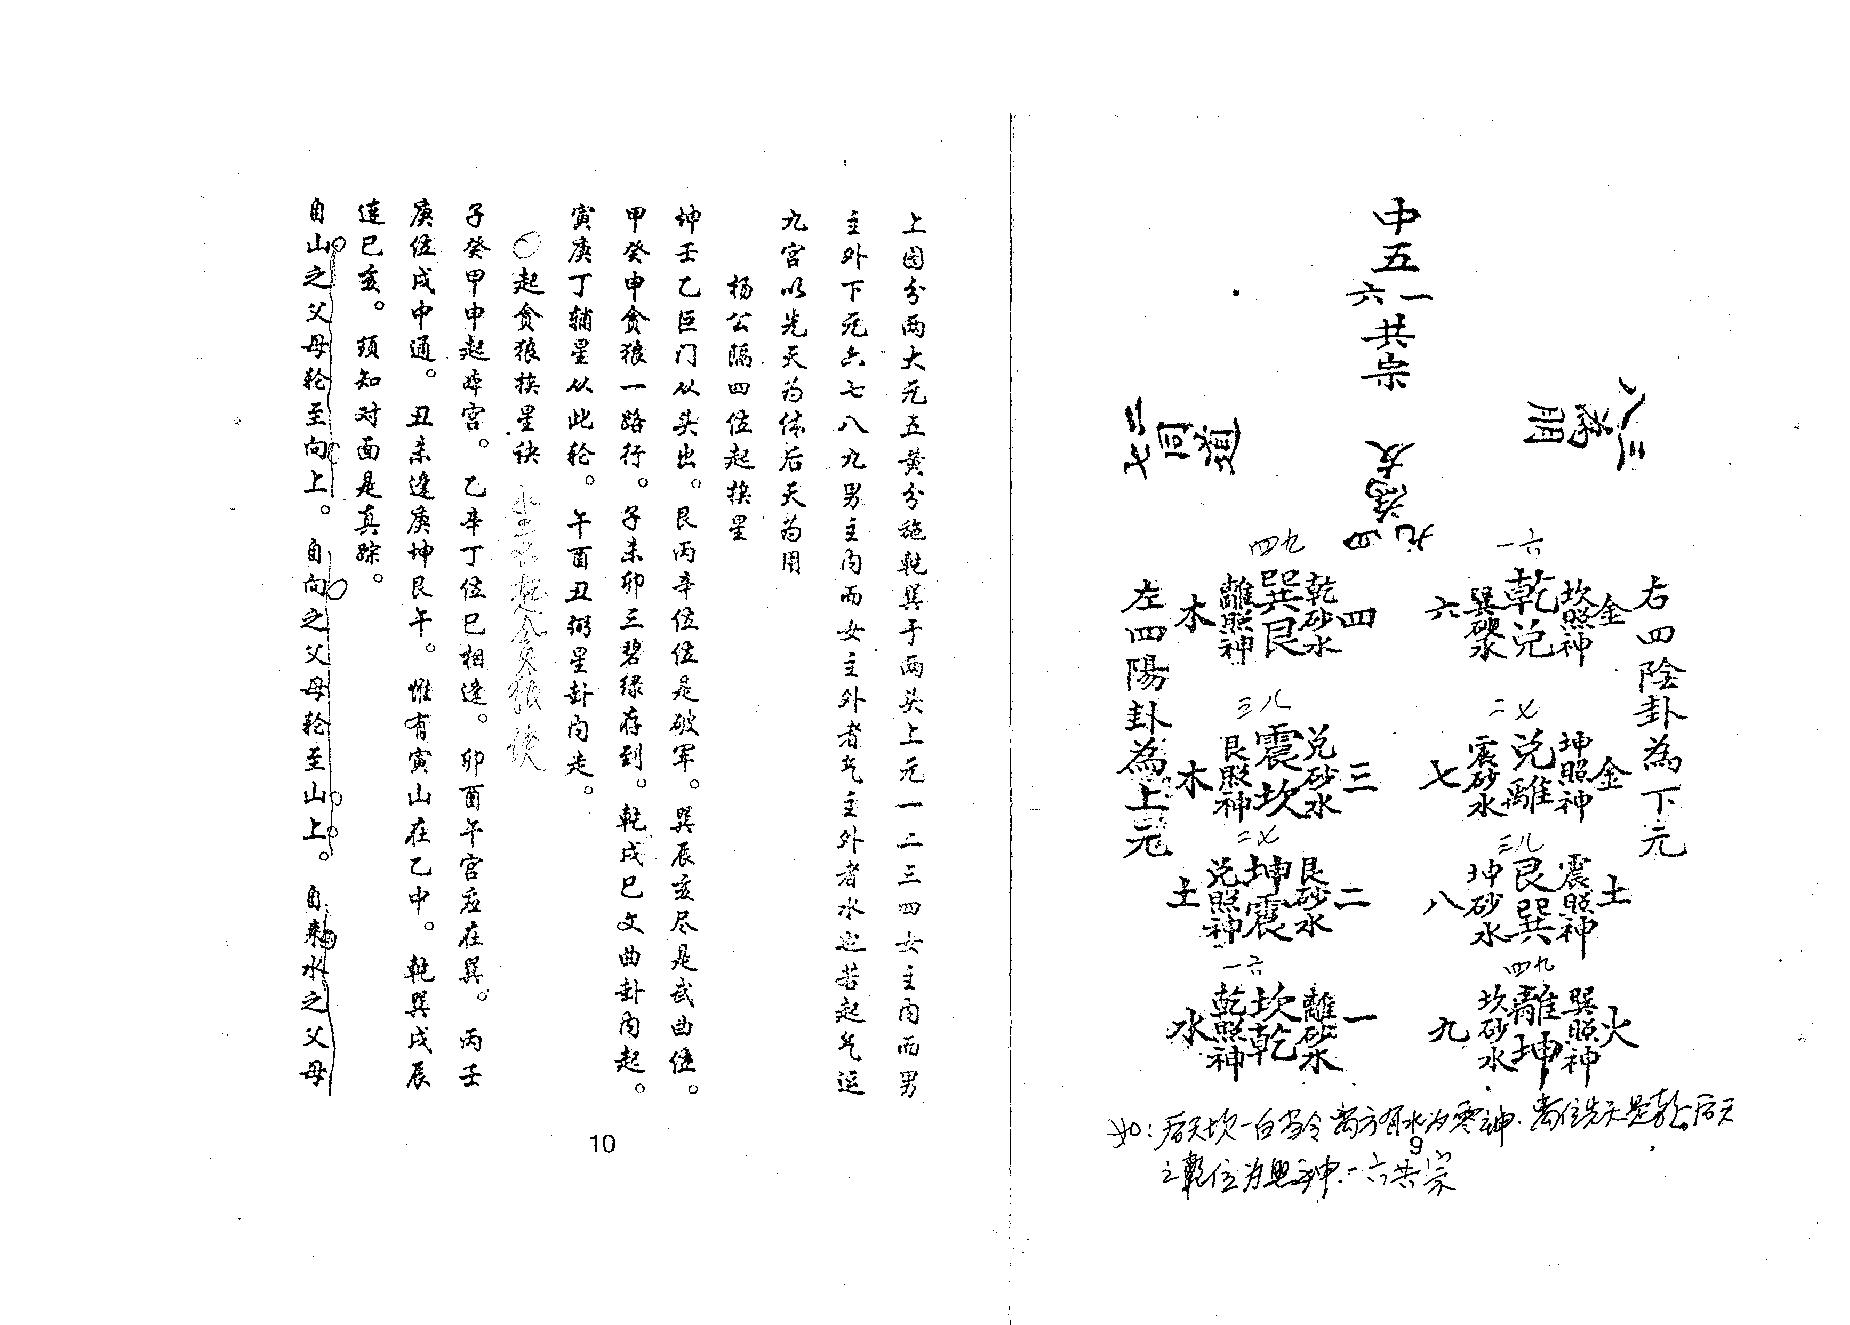 中五
六一
共宗
二七同道
三八為朋
四九為友
右四陰卦為下元
一六
六 巽砂水 乾兑 坎照神 金
二七
七 震砂水 兑離 坤照神 金
三八
八 坤砂水 艮巽 震照神 土
四九
九 坎砂水 離坤 巽照神 火
四九
木 離照神 巽艮 乾砂水 四
三八
木 艮照神 震坎 兑砂水 三
二七
土 兑照神 坤震 艮砂水 二
一六
水 乾照神 坎乾 離砂水 一
左四陽卦為上元
如：后天坎一白当令离方有水为零神.离位先天是乾.后天
之乾位为照神.一六共宗
9
上图分两大元五黄分施乾巽于两头上元一二三四女主内而男
主外下元六七八九男主内而女主外者气主外者水也若起气运
九宫以先天为体后天为用
杨公隔四位起挨星
坤壬乙巨门从头出。艮丙辛位位是破军。巽辰亥尽是武曲位。
甲癸申贪狼一路行。子未卯三碧绿存到。乾戌巳文曲卦内起。
寅庚丁辅星从此轮。午酉丑弼星卦内走。
〇起贪狼挨星诀
子癸甲申起坤宫。乙辛丁位巳相逢。卯酉午宫应在巽。丙壬
庚位戌中通。丑未逢庚坤艮午。惟有寅山在乙中。乾巽戌辰
连巳亥。须知对面是真踪。
自山之父母轮至向上。自向之父母轮至山上。自来水之父母
10